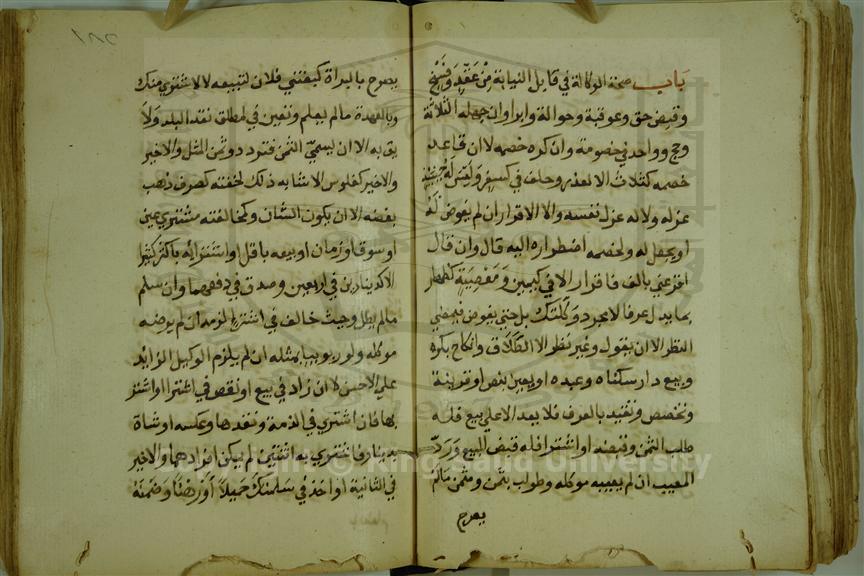 باب صحة الوكالة في قابل النيابة من عقد وفسخ
وقبض حق وعوقبة وحوالة وابرا وان جهله الثلاثة
وحج وواحد في خصومة وان كره خصمه لا ان قاعد
خصمه كثلاث الا لعذر وحلف في كسفر وليس له حينئذ
عزله ولا له عزل نفسه ولا الاقرار ان لم يفوض له
او يجعل له ولخصمه اضطراره اليه قال وان قال
اقر عني بالف فاقرار لا في كيمين ومعصية كظهار
بما يدل عرفا لا بمجرد وكلتك بل حتي يفوض فيمضي
النظر الا ان يقول وغير نظر الا الطلاق وانكاح بكره
وبيع دار سكناه وعبده او يعين بنص او قرينة
وتخصص وتقيد بالعرف فلا يعد الا علي بيع فله
طلب الثمن وقبضه او اشترا فله قبض المبيع ورد
المعيب ان لم يعينه موكله وطولب بثمن ومثمن ما لم
يصرح
يصرح بالبراة كبعثني فلان لتبيعه لا لاشتري منك
وبالعهدة ما لم يعلم وتعين في المطلق نقد البلد ولا
يق به الا ان يسمي الثمن فتردد وثمن المثل والا خير
والاخير كفلوس الا شا به ذلك لخفته كصرف ذهب
بفضه الا ان يكون الشان وكمخالفته مشتري عين
او سوقا او زمان او بيعه باقل او اشترائه باكثر كثيرا
الا كدينارين في اربعين وصدق في دفعهما وان سلم
ما لم يطل وحيث خالف في اشترا لزمه ان لم يرضه
موكله ولو ربويا بمثله ان لم يلزم الوكيل الزايد
علي الاحسن لا ان زاد في بيع او نقص في اشترا او اشتر
بها فان اشتري في الذمة ونقدها وعكسه او شاة
بدينار فاشتري به اثنتين لم يمكن افرادهما والا خير
في الثانية او اخذ في سلمك حميلا او رهنا وضمنه